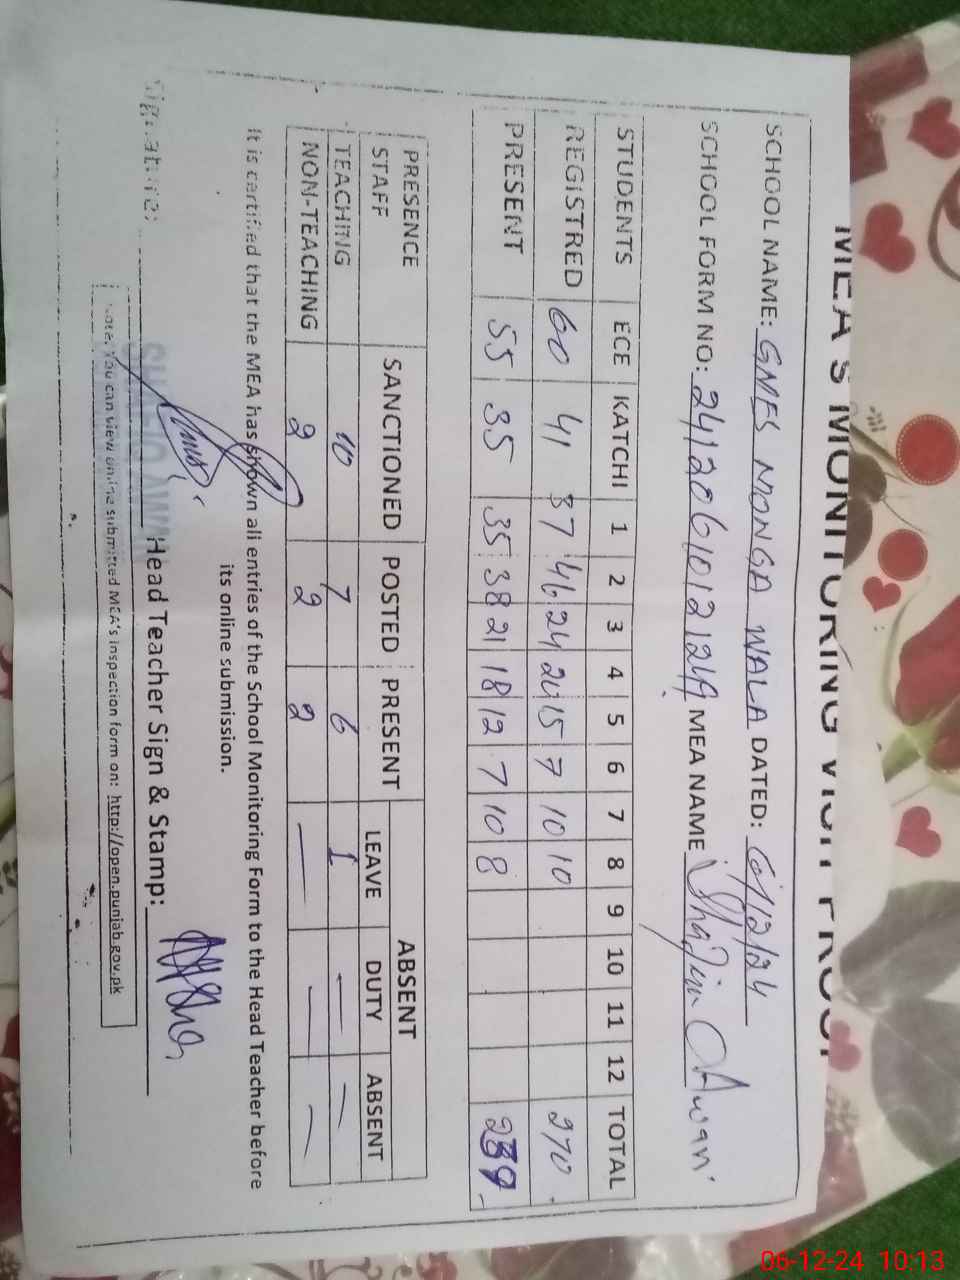 MEA's MONITORING VISIT PROOF
SCHOOL NAME: GMES NONGA WALA DATED: 6/12/24
SCHOOL FORM NO: MEA NAME Awan
STUDENTS ECE KATCHI 1 2 3 4 5 6 7 8 9 10 11 12 TOTAL
REGISTRED 60 41 37 46 24 20 15 7 10 10 270
PRESENT 55 35 35 38 21 18 12 7 10 8 239
PRESENCE STAFF SANCTIONED POSTED PRESENT ABSENT
LEAVE DUTY ABSENT
TEACHING 10 7 6 1 — —
NON-TEACHING 2 2 2 — — —
It is certified that the MEA has shown all entries of the School Monitoring Form to the Head Teacher before
its online submission.
Signature: Head Teacher Sign & Stamp:
Note: You can view online submitted MEA's inspection form on: http://open.punjab.gov.pk
06-12-24 10:13